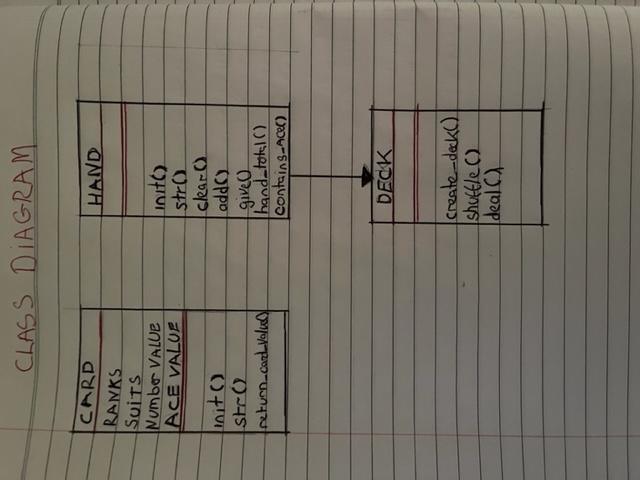 CLASS DiAGRAM
CARD
RANKS
SUITS
Number VALUE
ACE VALUE
init()
str()
return_card_value()
HAND
init()
str()
clear()
add()
give()
hand_total()
contains_Ace()
DECK
create_deck()
shuffle()
deal()